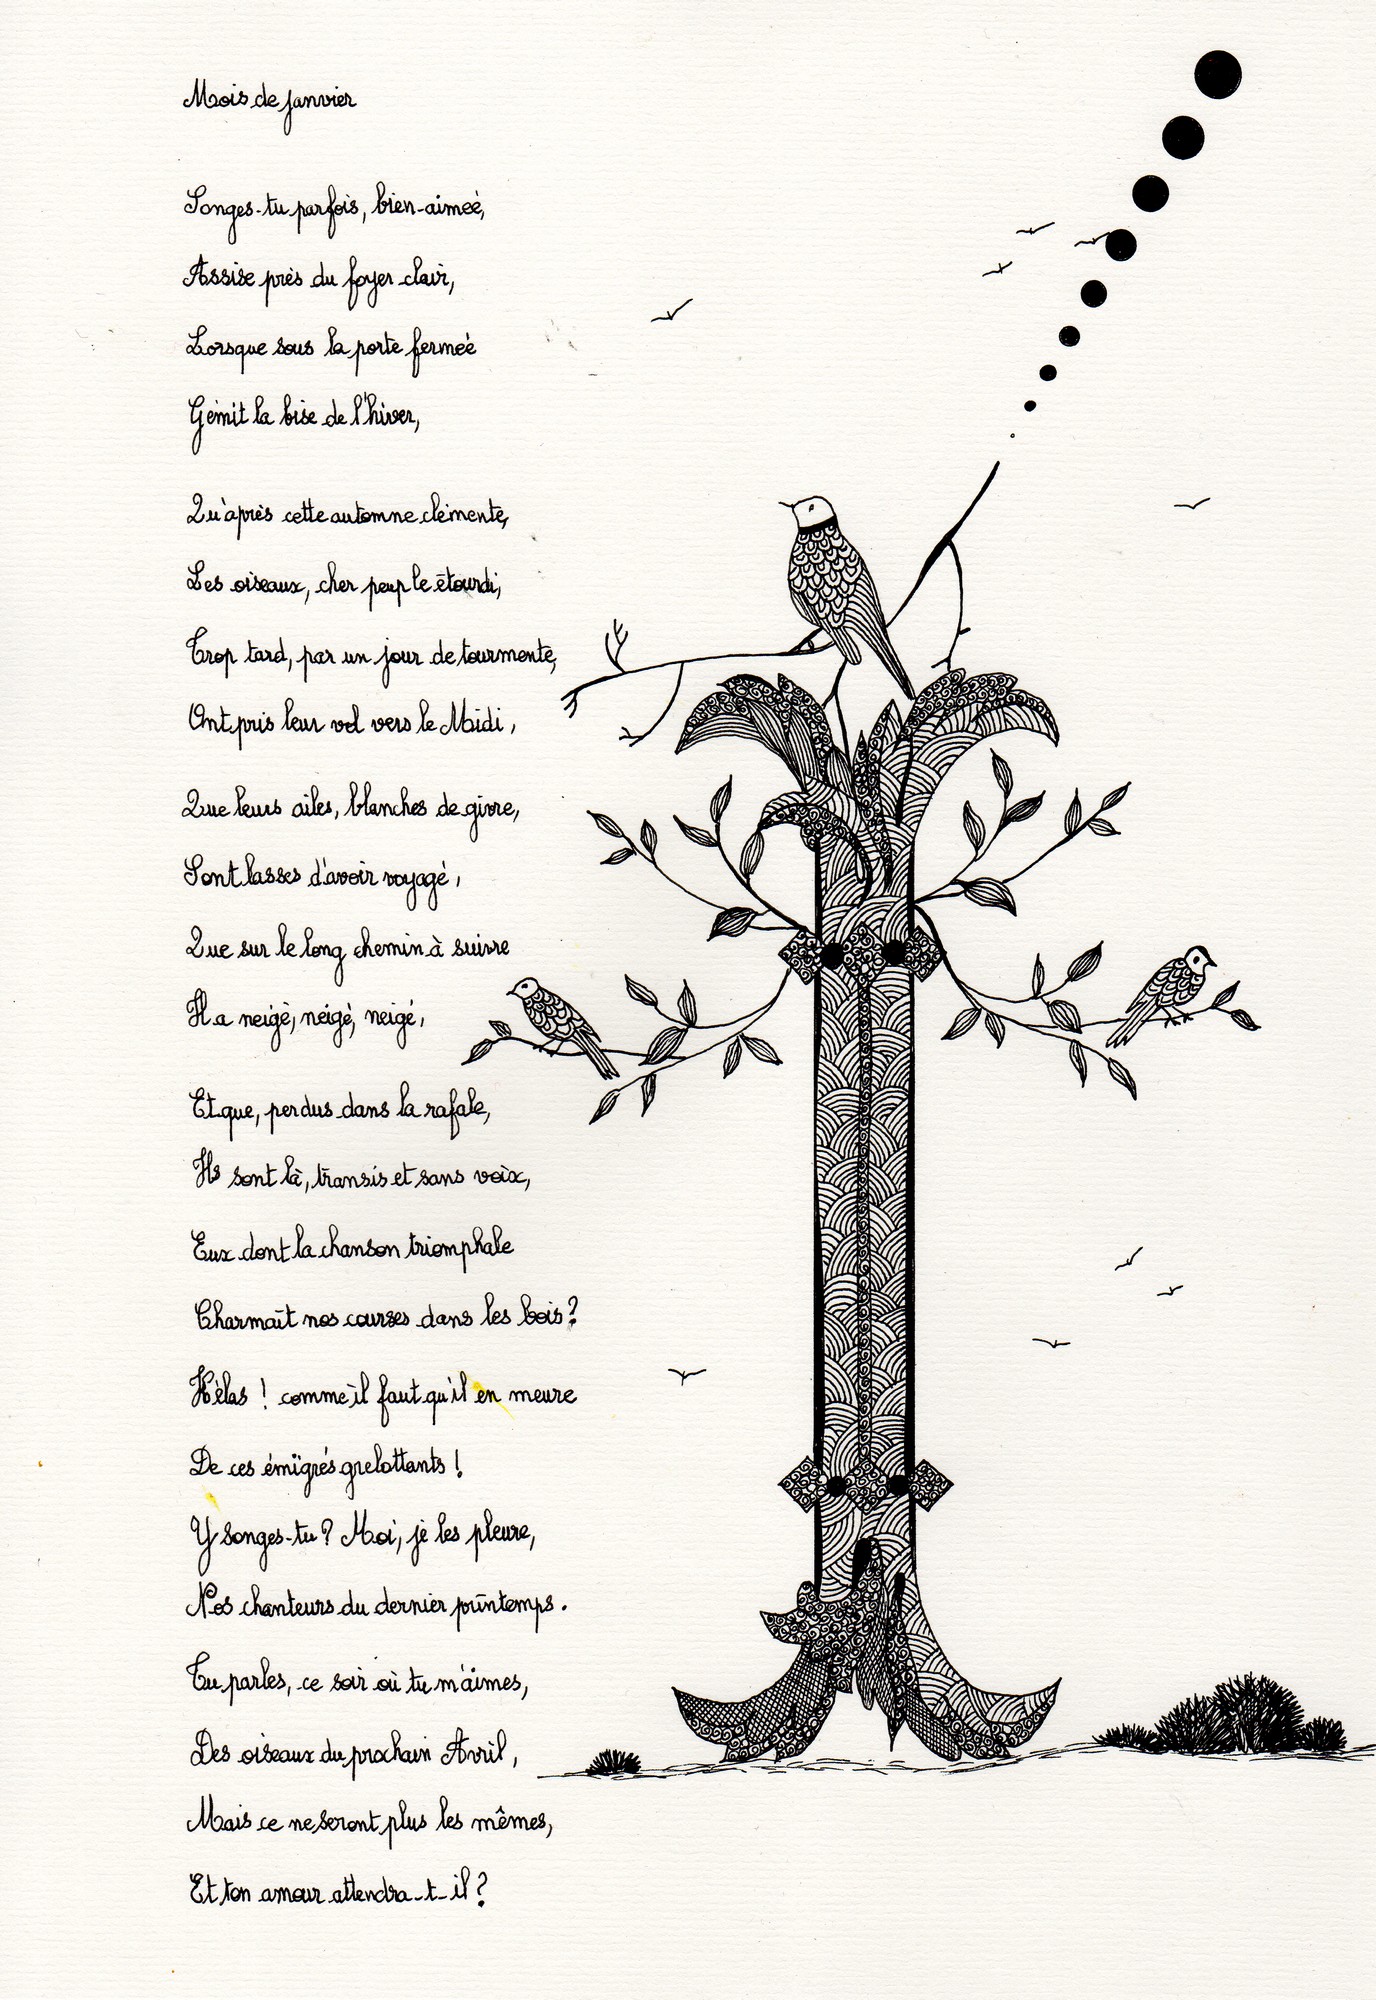 Mois de janvier
Songes-tu parfois, bien-aimée,
Assise près du foyer clair,
Lorsque sous la porte fermée
Gémit la bise de l'hiver,
Qu'après cette automne clémente,
Les oiseaux, cher peuple étourdi,
Trop tard, par un jour de tourmente,
Ont pris leur vol vers le Midi,
Que leurs ailes, blanches de givre,
Sont lasses d'avoir voyagé,
Que sur le long chemin à suivre
Il a neigé, neigé, neigé,
Et que, perdus dans la rafale,
Ils sont là, transis et sans voix,
Eux dont la chanson triomphale
Charmait nos courses dans les bois ?
Hélas ! comme il faut qu'il en meure
De ces émigrés grelottants !
Y songes-tu ? Moi, je les pleure,
Nos chanteurs du dernier printemps.
Tu parles, ce soir où tu m'aimes,
Des oiseaux du prochain Avril,
Mais ce ne seront plus les mêmes,
Et ton amour attendra-t-il ?